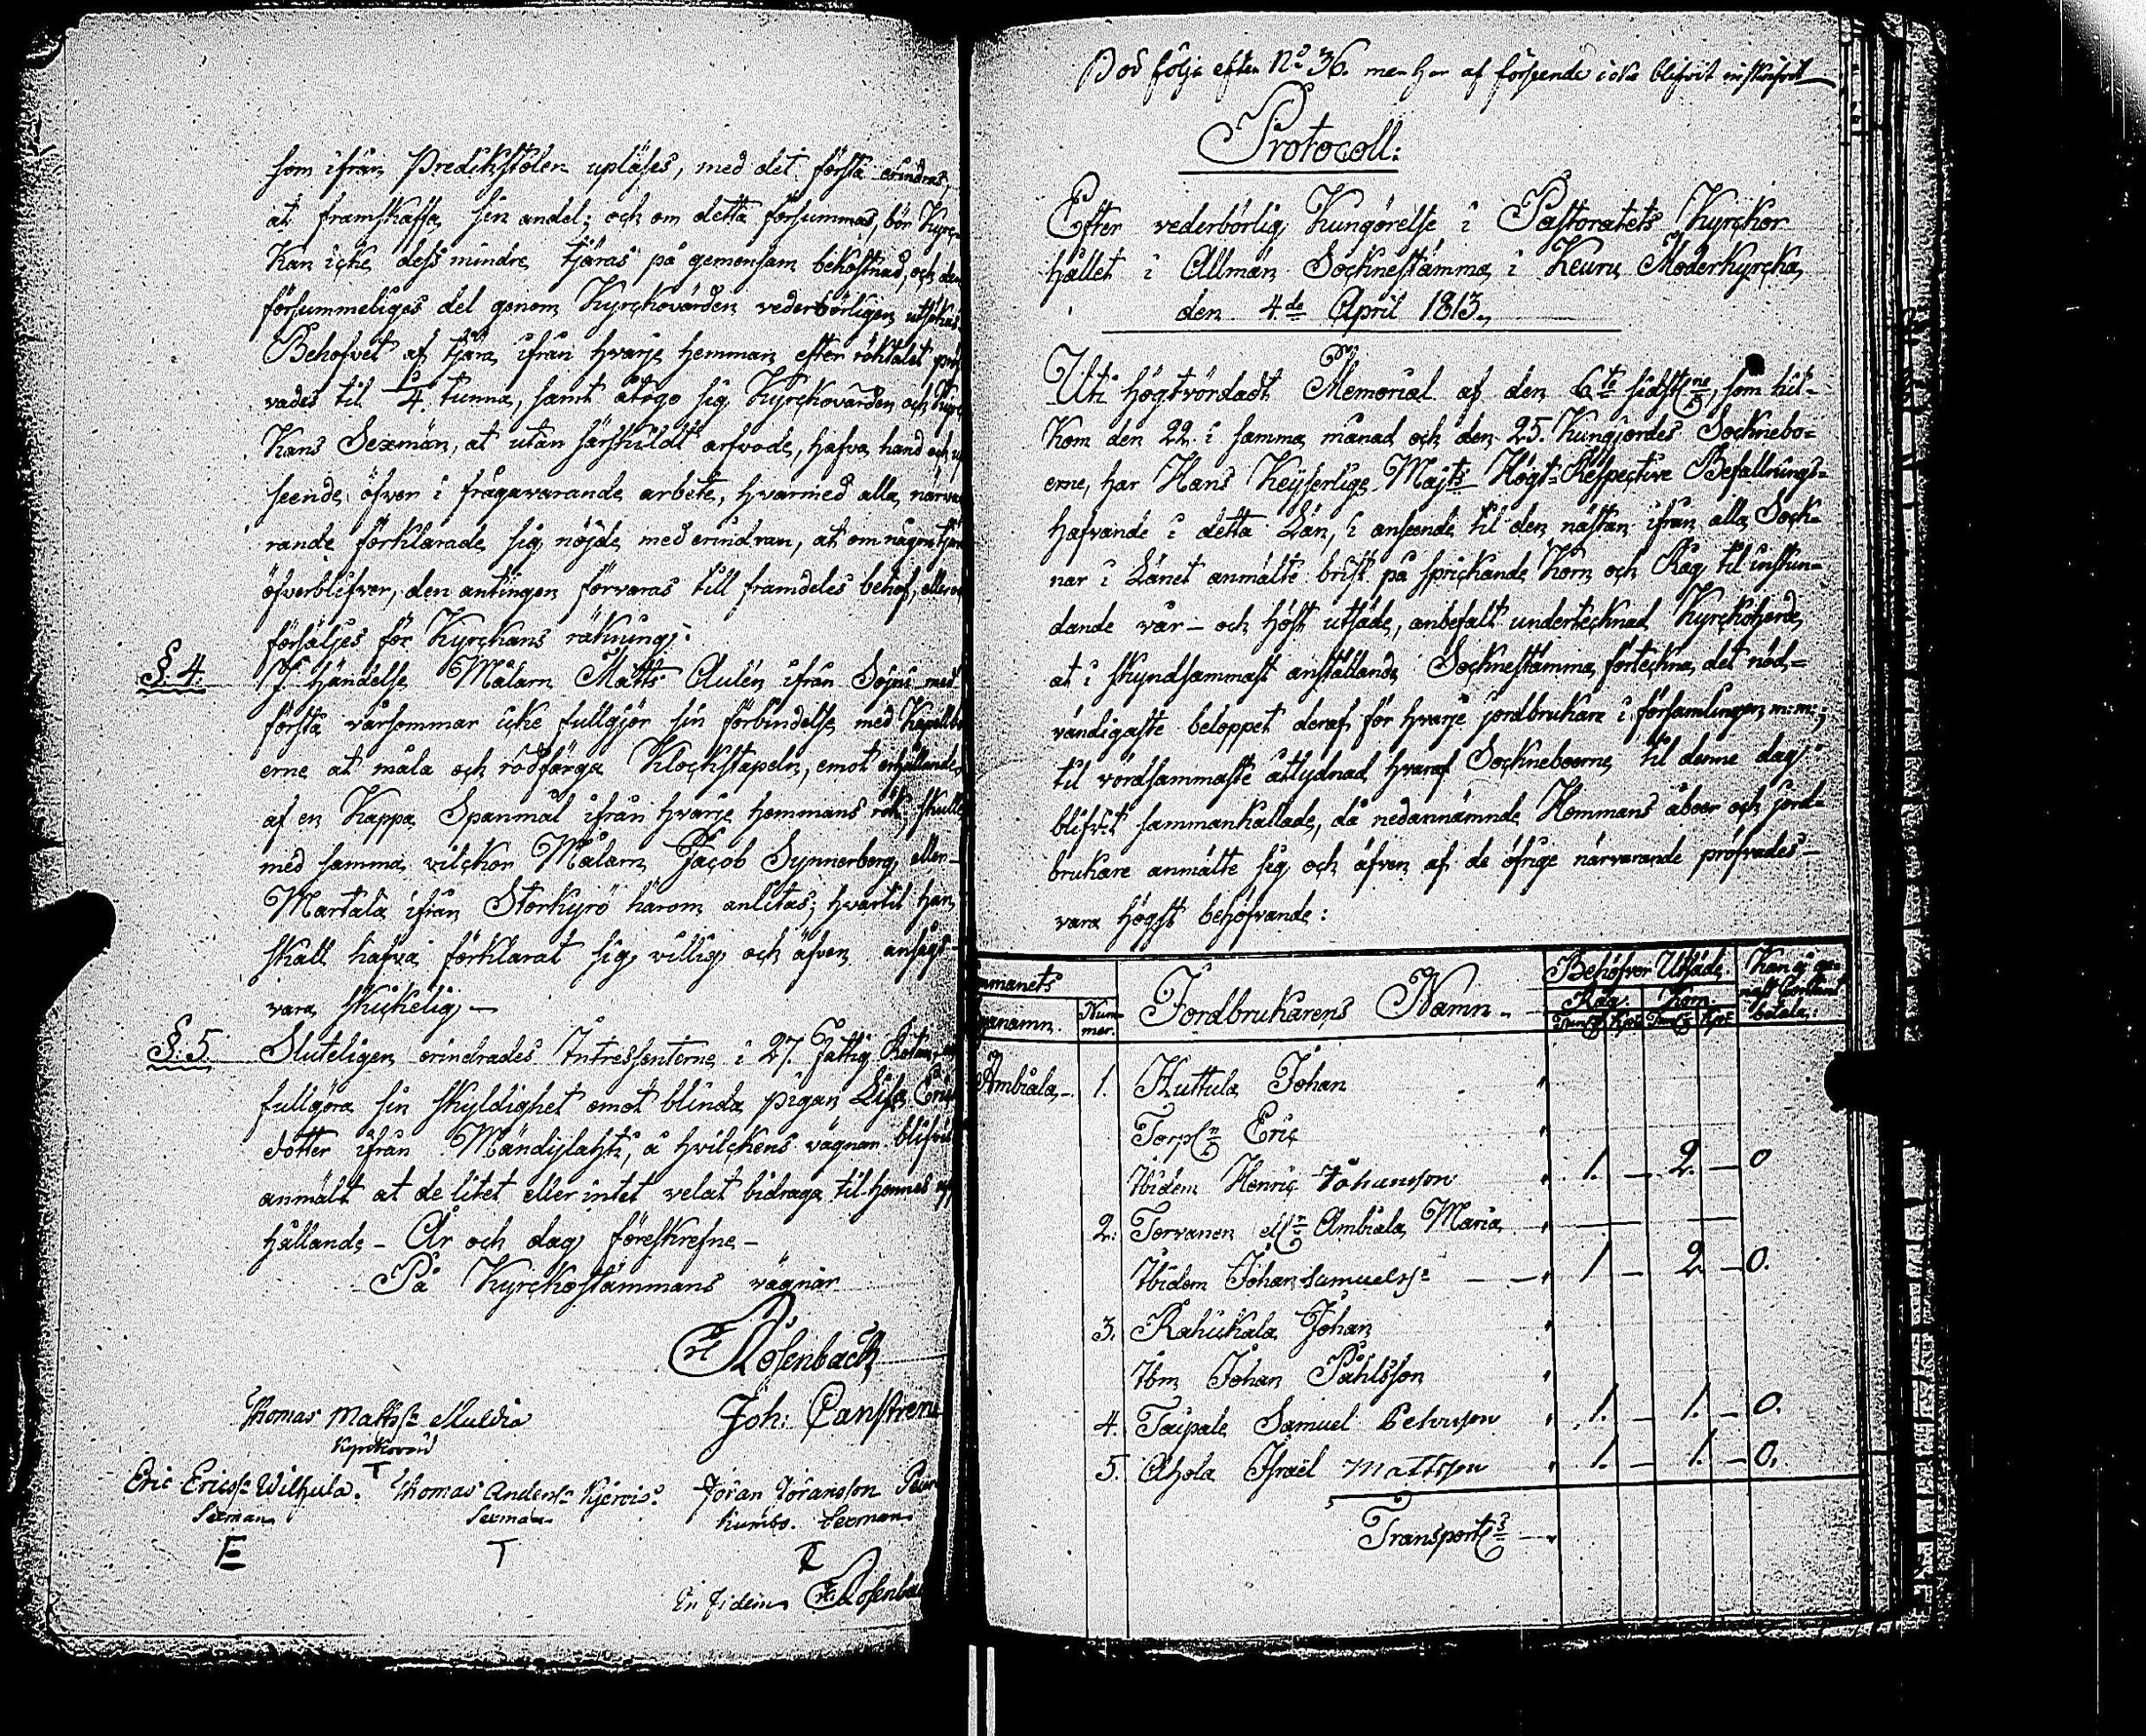 som ifrån Predikstolen upläses, med det första erindras,
at framskaffa sin andel; och om detta försummas, bör Kyrc-
kan icke dess mindre tjäras på gemensam bekostnad, och den
försummeliges del genom Kyrckovärden vederbörligen utsökas.
Behofvet af tjära ifrån hvarje hemman efter röktalet pröf
vades til 1/4 tunna, samt åtogo sig Kyrckovärden och Kyrc
kans Sexmän, at utan särskildt arfvode, hafva hand och up
seende öfver i frågavarande arbete, hvarmed alla närva
rande förklarade sig nöjde med erindran, at om någon tjära
öfverblifver, den antingen förvaras till framdeles behof, eller ock
försäljes för Kyrckans räkning.
§. 4. I händelse Målarn Matts Aulén ifrån Sojni med
första vårsommar icke fullgjör sin förbindelse med Kapellbo
erne at måla och rödfärga Klockstapeln, emot erhållande
af en Kappa Spanmål ifrån hvarje hemmans rök, skulle
med samma vilckor Målarn Jacob Synnerberg eller
Martala ifrån Storkyro härom anlitas; hvartil han
skall hafva förklarat sig villig och äfven ansågs
vara skickelig —
§. 5 Sluteligen erindrades Intressenterne i 27. Fattig Rotan, at
fullgöra sin skyldighet emot blinda pigan Lisa Erics
dotter ifrån Mändylahti, å hvilckens vägnar blifvit
anmält at de litet eller intet velat bidraga til hennes upp
hållande — År och dag föreskrefne —
På Kyrckostämmans vägnar
Rosenback
Thomas Mattss: Joh: Canstren
Kyrckovärd
Eric Ericss: Wilhula. Thomas Anderss: Jöran Jöransson
Sexman Sexman Sexman
E T
In fidem Rosenback
Bör följa efter No 36. men har af förseende icke blifvit inskrifvit
Protocoll:
Efter vederbörlig Kungörelse i Pastoratets Kyrckor
hållet i Allmän Socknestämma i Keuru Moderkyrcka
den 4de April 1813.
Uti högtvördadt Memorial af den 6te sidstne, som hit-
kom den 22. i samma månad och den 25. Kungjordes Socknebo=
erne, har Hans Keyserlige Majts Högt=Respective Befallnings=
hafvande i detta Län, i anseende til den nästan ifrån alla Sock=
nar i Länet anmälte brist på sprickande Korn och Råg til instun=
dande vår- och höst utsäde, anbefalt undertecknad Kyrckoherde,
at i skyndsammast anställande Socknestämma förteckna det nöd=
vändigaste beloppet deraf för hvarje jordbrukare i församlingen m:m:;
til vördsammaste åtlydnad hvaraf Sockneboerne til denne dag
blifvit sammankallade, då nedannämnde Hemmans åboer och jord=
brukare anmälte sig och äfven af de öfrige närvarande pröfvades
vara högst behöfvande:
mmanets
Num-
mer. Jordbrukarens Namn Behöfver Utsäde.
Råg. Korn. betala:
Ambiala 1. Huttula Johan
Torp Eric
Ibidem Henric Johansson 1. — 2. — 0
2. Torvanen Ambiala Maria
Ibidem Johan Samuelss: 1 — 2 — 0.
3. Rahickala Johan
Ibm Johan Påhlsson
4. Taipale Samuel 1. — 1. — 0.
5. Ahola Israël Mattsson 1. — 1. — 0.
Transport